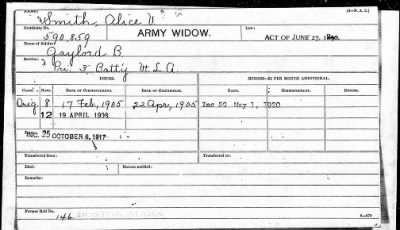 Name: Smith, Alice
(3—P. A. C.)
Certificate No. 590,859
ARMY WIDOW.
ACT OF JUNE 27, 1890.
Name of Soldier: Gaylord B.
Service: Pri. Batty Vt. L. A.
ISSUES.
MINORS—$2 PER MONTH ADDITIONAL.
Class. Rate. Date of Commencement. Date of Certificate. Commencement. Ending.
Orig 8 17 Feb, 1905 22 Apr, 1905 Inc May 1, 1920
12 19 APRIL 1908
INC. 25 OCTOBER 6, 1917
Transferred from:
Transferred to:
Died:
Bureau notified:
Remarks:
Former Roll No. 146